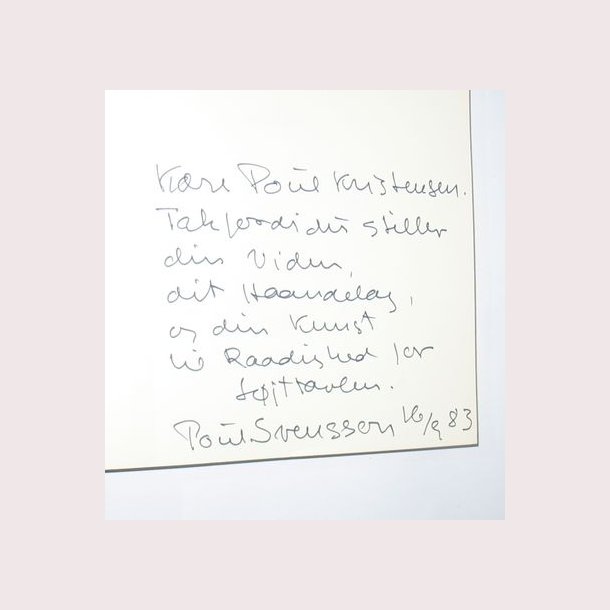 Kære Poul Kristensen.
Tak fordi du stiller
din Viden,
dit Haandelag,
og din Kunst
til Raadighed for
Højttavlen.
Poul Svensson 16/9 83